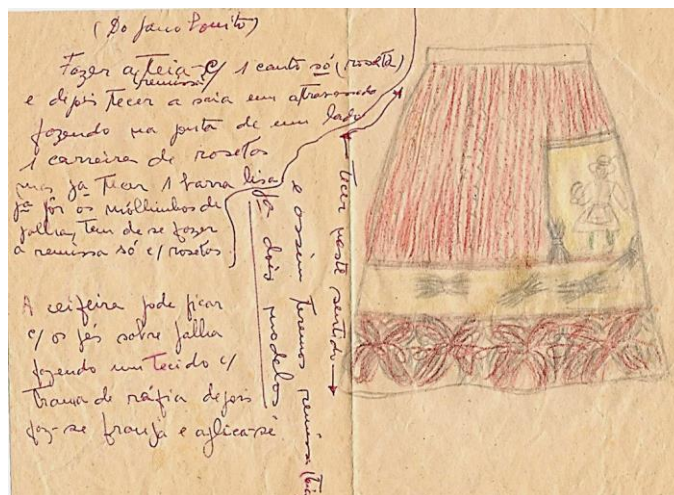 (Do pano bonito)
Fazer a teia - c/ 1 canto só (roseta)
remissa
e depois tecer a saia em atravessado
fazendo na ponta de um lado
1 carreira de rosetas
mas já tecer 1 barra lisa
já pôr os mólhinhos de
palha, tem de se fazer
a remissa só c/ rosetas
A ceifeira pode ficar
c/ os pés sobre palha
fazendo um tecido c/
trama de ráfia depois
faz-se franja e aplica-se
e assim teremos remissa
já dois modelos
tecer neste sentido